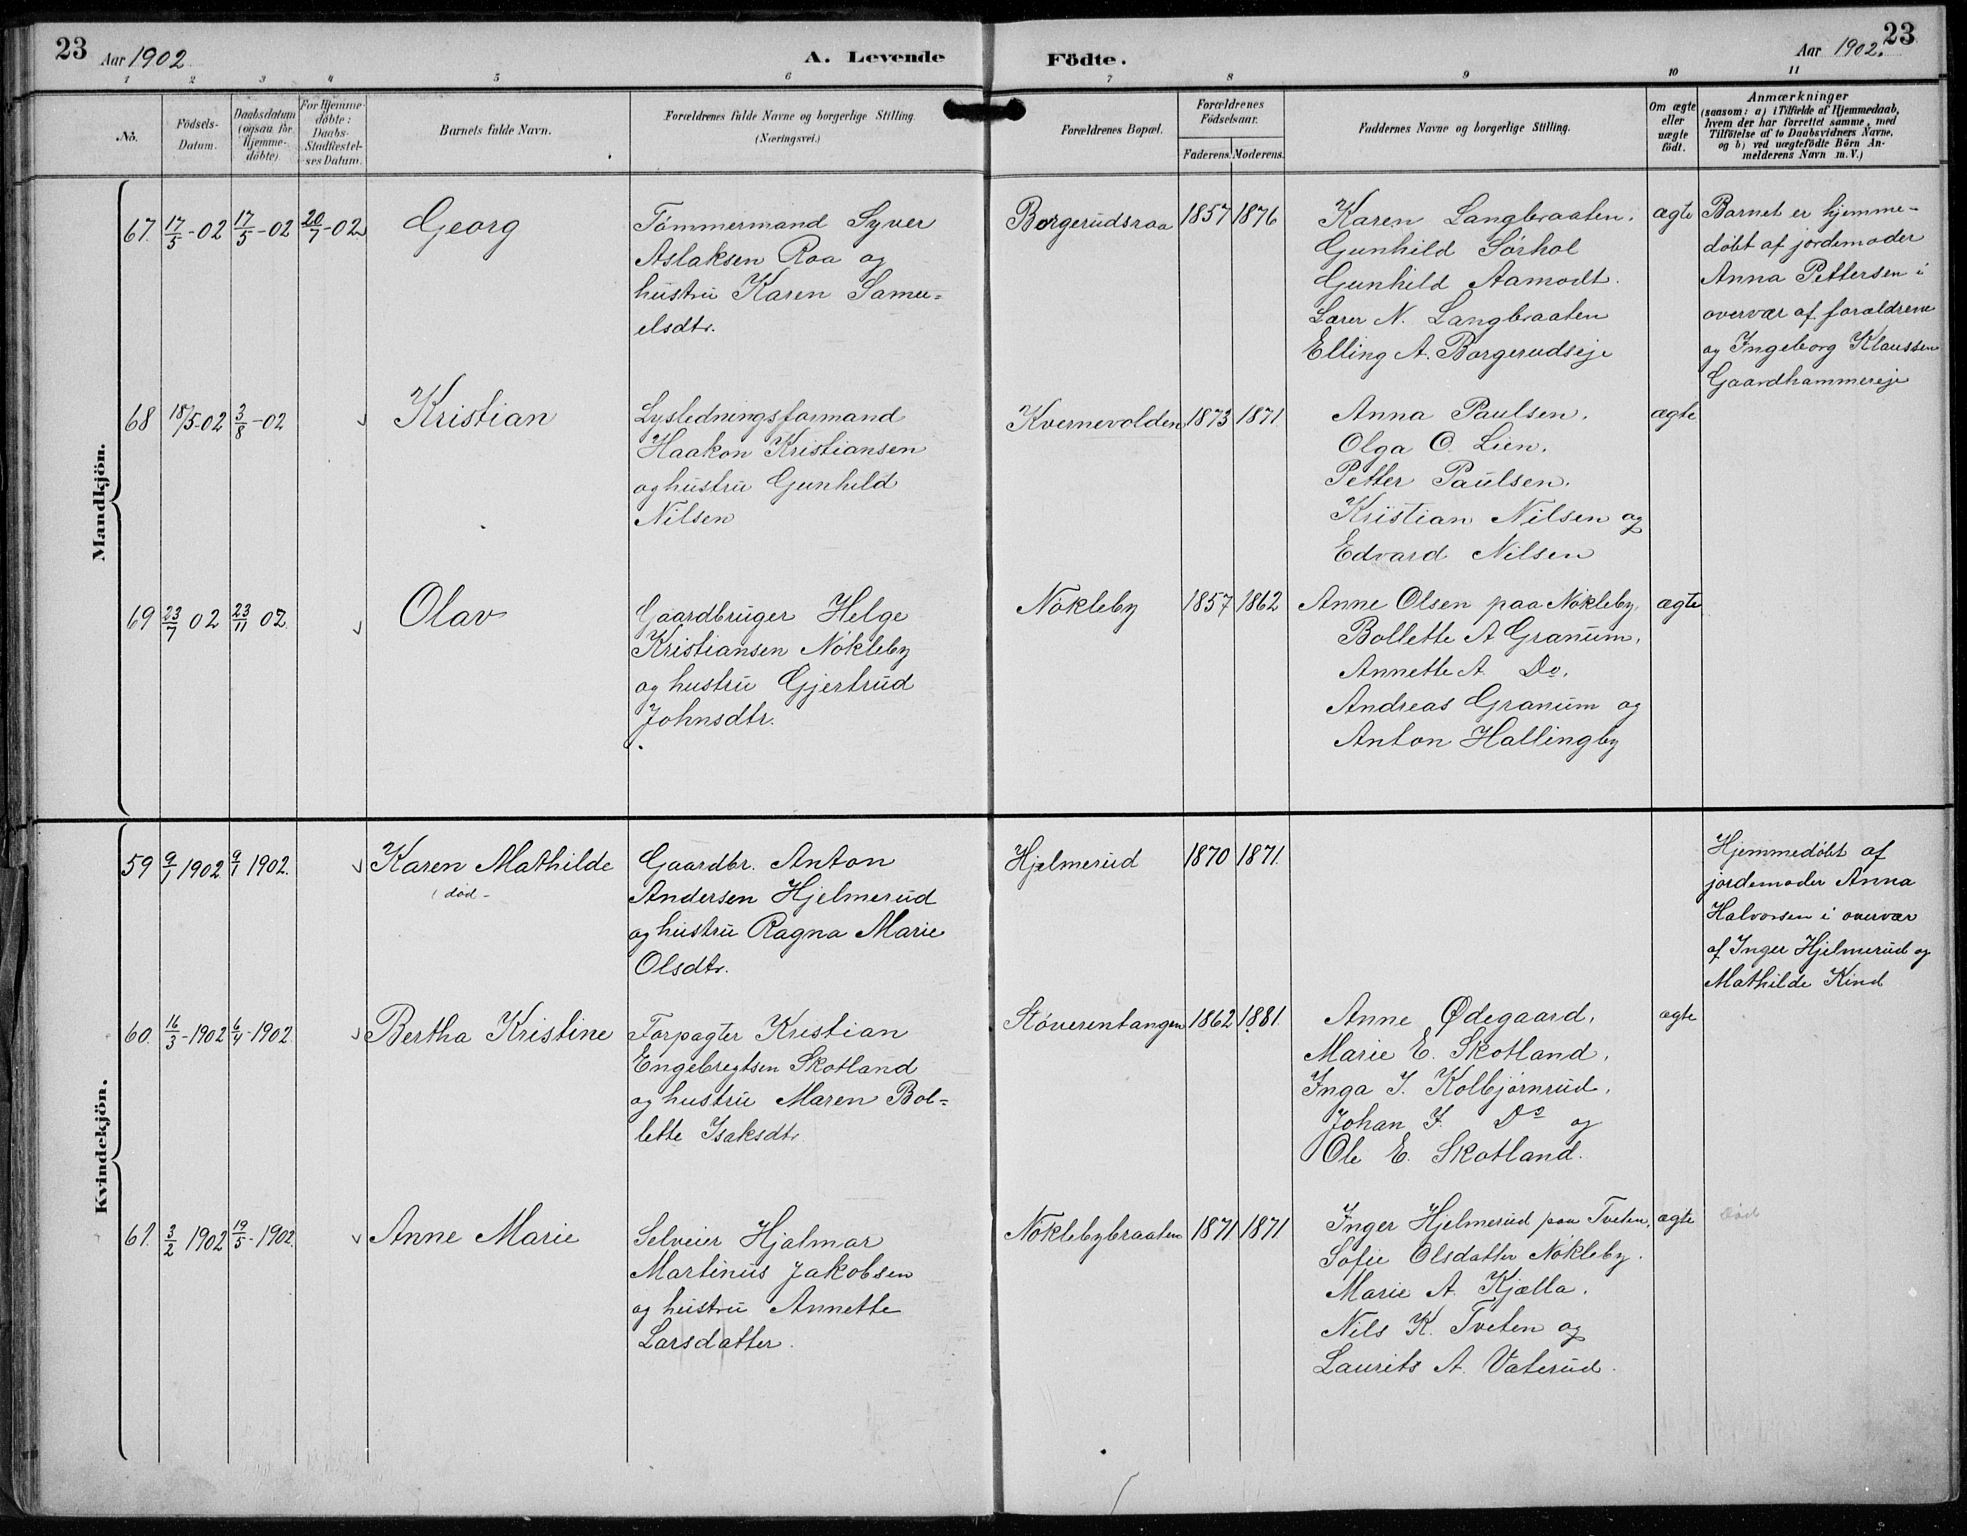 23 Aar 1902 A. Levende Födte. Aar 1902. 23
1 2 3 4 5 6 7 8 9 10 11
No.
Födsels-
Datum.
Daabsdatum
(ogsaa for
Hjemme-
döbte)
For Hjemme-
döbte:
Daabs-
Stadfæstel-
ses Datum.
Barnets fulde Navn.
Forældrenes fulde Navne og borgerlige Stilling.
(Næringsvei.)
Forældrenes Bopæl.
Forældrenes
Födselsaar.
Faderens. Moderens.
Faddernes Navne og borgerlige Stilling.
Om ægte
eller
uægte
födt.
Anmærkninger
(saasom: a) i Tilfælde af Hjemmedaab,
hvem der har forrettet samme, med
Tilföielse af to Daabsvidners Navne,
og b) ved uægtefödte Börn An-
melderens Navn m. V.)
Mandkjön.
67. 17/5-02 17/5-02 20/7-02 Georg
Tømmermand Syver
Aslaksen Roa og
hustru Karen Samu-
elsdtr.
Borgerudsraa 1857 1876
Karen Langbraaten.
Gunhild Sørhol
Gunhild Aamodt.
Lærer N. Langbraaten
Elling A. Borgerudseje
ægte
Barnet er hjemme-
døbt af jordemoder
Anna Pettersen i
overvær af forældrene
og Ingeborg Klaussen
Gaardhammereje
68 18/5-02 3/8-02 Kristian
Lysledningsformand
Haakon Kristiansen
og hustru Gunhild
Nilsen
Kvernevolden 1873 1871.
Anna Paulsen.
Olga O. Lien.
Petter Paulsen.
Kristian Nilsen og
Edvard Nilsen
ægte
69 23/7 02 23/11 02. Olav
Gaardbruger Helge
Kristiansen Nøkleby
og hustru Gjertrud
Johnsdtr.
Nøkleby 1857 1862
Anne Olsen paa Nøkleby.
Bollette A Granum.
Annette A. Do.
Andreas Granum og
Anton Hallingby
ægte
Kvindekjön.
59 9/1 1902. 9/1 1902. Karen Mathilde
død-
Gaardbr. Anton
Andersen Hjelmerud
og hustru Ragna Marie
Olsdtr.
Hjelmerud 1870 1871.
Hjemmedøbt af
jordemoder Anna
Halvorsen i overvær
af Inger Hjelmerud og
Mathilde Kind
60. 16/3-1902 6/4-1902. Bertha Kristine
Forpagter Kristian
Engebregtsen Skotland
og hustru Maren Bol-
lette Isaksdtr.
Støverentangen 1862 1881.
Anne Ødegaard.
Marie E. Skotland.
Inga I. Kolbjørnrud.
Johan I. Do og
Ole E. Skotland.
ægte
61. 3/2 1902 19/5-1902. Anne Marie
Selveier Hjalmar
Martinus Jakobsen
og hustru Annette
Larsdatter.
Nøklebybraaten 1871 1871
Inger Hjelmerud paa Tveten.
Sofie Olsdatter Nøkleby.
Marie A. Kjælla.
Nils K. Tveten og
Laurits A. Vaterud.
ægte
død